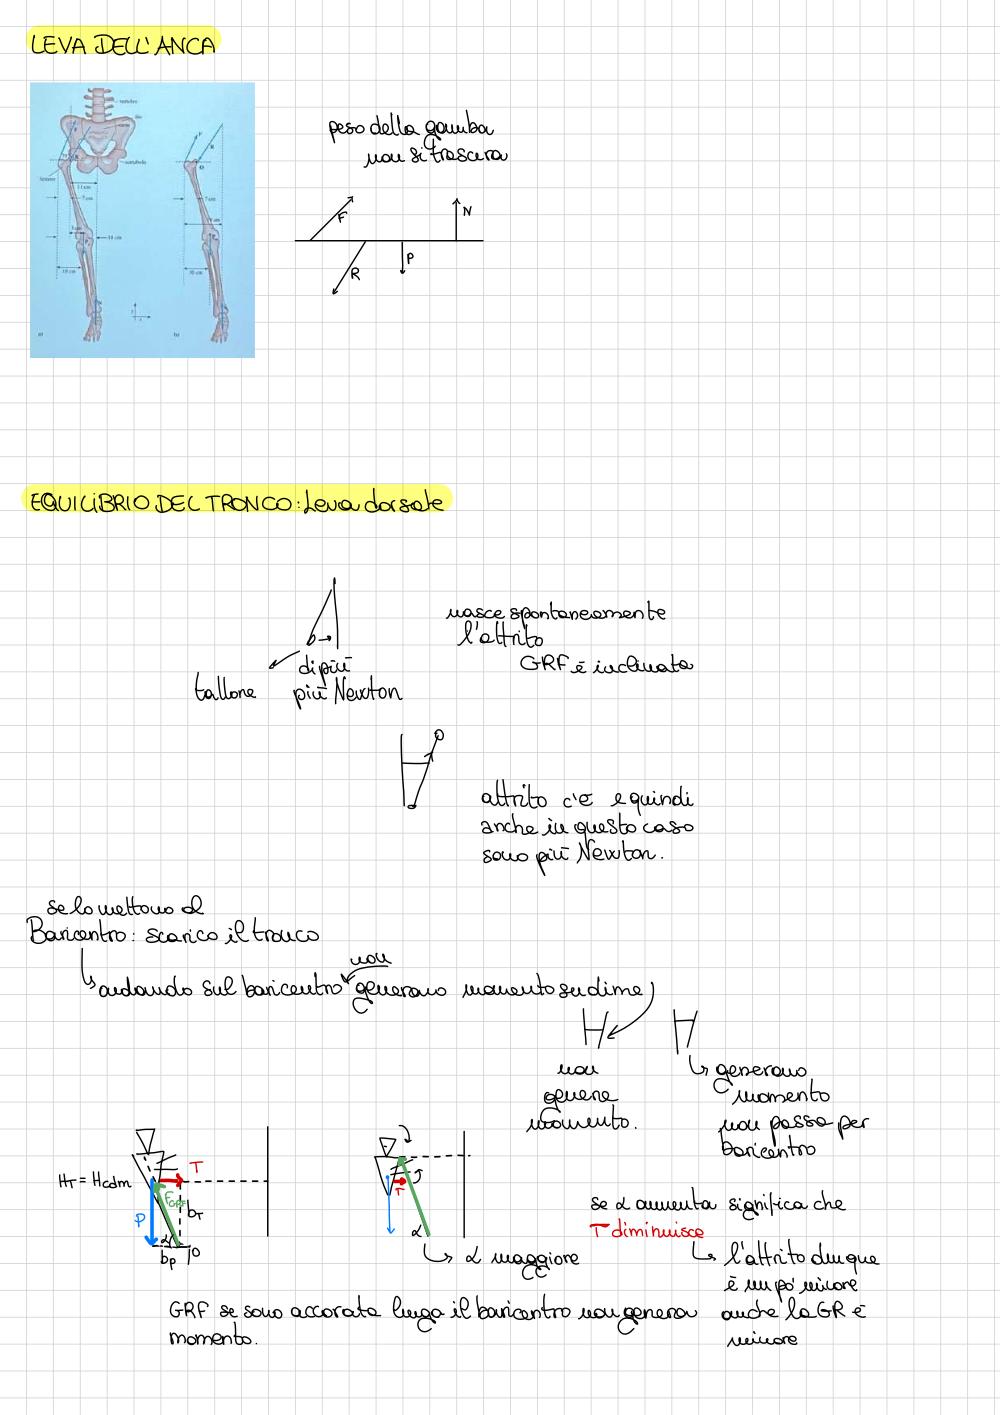 LEVA DELL'ANCA
vertebre
11 cm
7 cm
18 cm
10 cm
a)
b)
peso della gamba
non si trascura
F
R
P
N
EQUILIBRIO DEL TRONCO: Leva dorsale
nasce spontaneamente
l'attrito
GRF è inclinata
di più
tallone più Newton
attrito c'è e quindi
anche in questo caso
sono più Newton.
se lo mettono al
Baricentro: scarico il tronco
non
andando sul baricentro generano momento su di me
non
genera
momento.
generano
momento
non passa per
baricentro
HT = Hcdm
T
FGRF
P
bT
α
bP
O
T
α
α maggiore
se α aumenta significa che
T diminuisce
l'attrito dunque
è un pó minore
anche la GR è
minore
GRF se sono accorata lungo il baricentro non genera
momento.